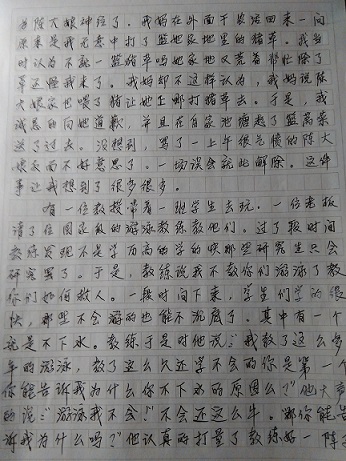 为陈大娘神经了。我妈在外面干农活回来一问
原来是我无意中打了篮她家地里的猪草。我当
时认为不就一篮猪草吗她家地又荒着帮忙除了
草还怪我来了。我妈却不这样认为，我妈说陈
大娘家也喂了猪让她上哪打猪草去。于是，我
诚恳的向她道歉，并且在自家池塘起了篮蒿菜
送了过去。没想到，骂了一上午很气愤的陈大
娘反而不好意思了。一切误会就此解除。这件
事让我想到了很多很多。
有一位教授带着一班学生去玩，一位老板
请了位国足的游泳教练教他们。过了段时间
教练发现不是学历高的学的快那里研究生只会
研究罢了。于是，教练说我不教你们游泳了教
你们如何救人。一段时间下来，学生们学的很
快，那里不会游的也能不沉底了。其中有一个
就是不下水。教练于是对他说：我教了这么多
年的游泳，教了这么久还学不会的你是第一个
你能告诉我为什么你不下水的原因么？"他大声
的说："游泳我不会！"不会还这么牛。那你能告
诉我为什么吗？"他认真的打量了教练好一阵子